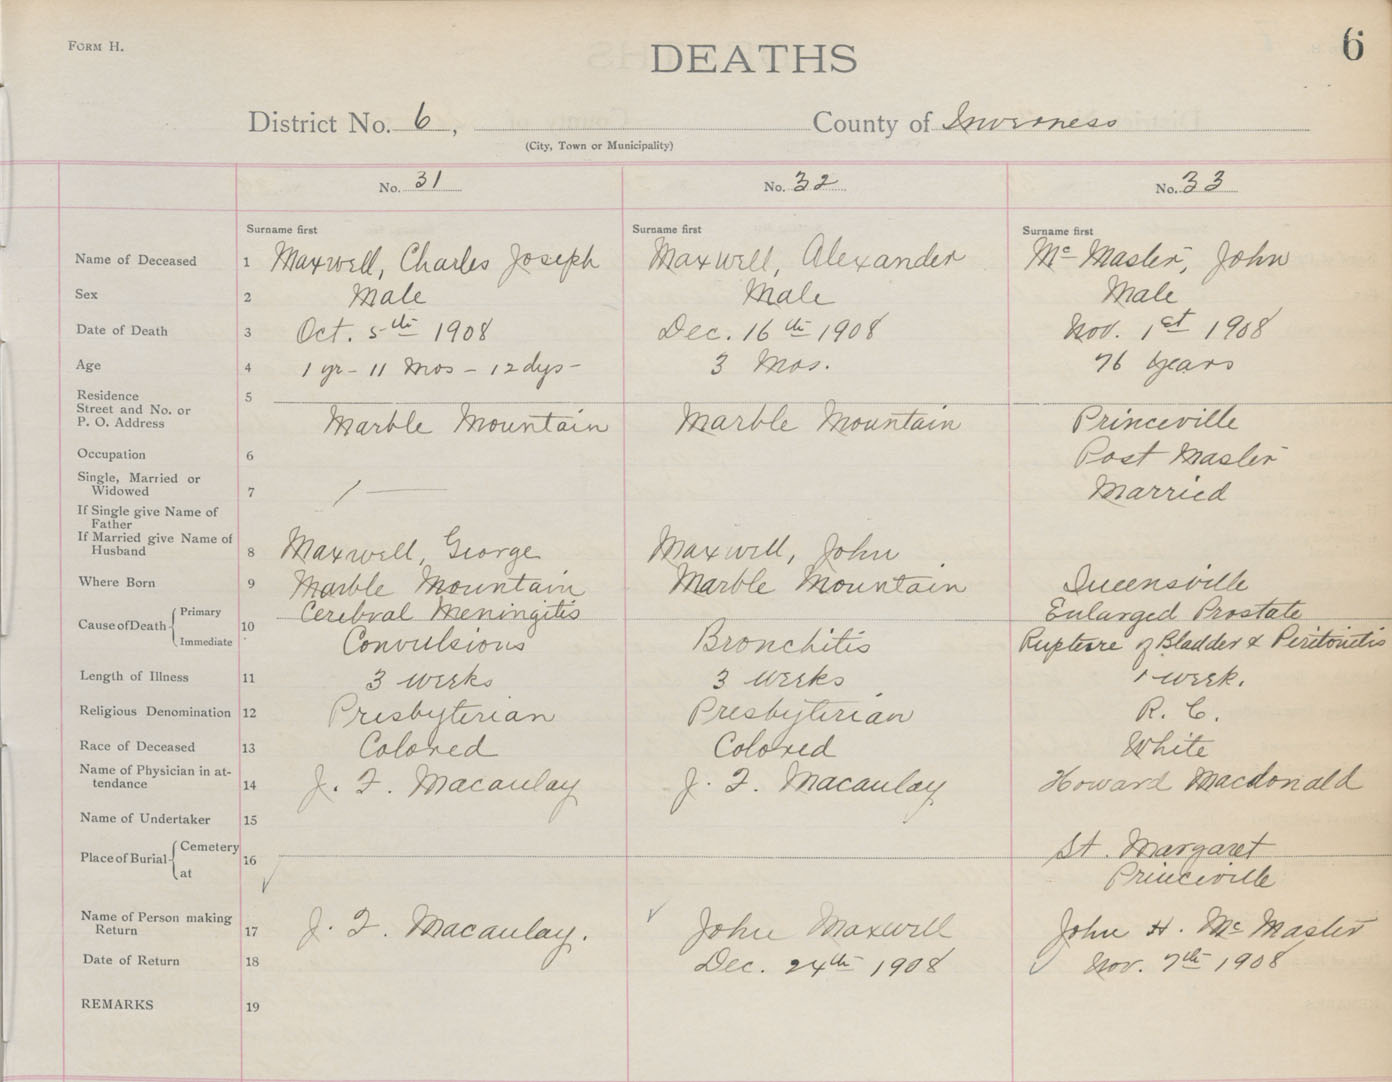 FORM H.
DEATHS
6
District No. 6, County of Inverness
(City, Town or Municipality)
No. 31 No. 32 No. 33
Surname first Surname first Surname first
Name of Deceased 1 Maxwell, Charles Joseph Maxwell, Alexander Mc Master, John
Sex 2 Male Male Male
Date of Death 3 Oct. 5th 1908 Dec. 16th 1908 Nov. 1st 1908
Age 4 1 yr - 11 Mos - 12 dys - 3 Mos. 76 years
Residence 5
Street and No. or
P. O. Address Marble Mountain Marble Mountain Princeville
Occupation 6 Post Master
Single, Married or
Widowed 7 / — Married
If Single give Name of
Father
If Married give Name of
Husband 8 Maxwell, George Maxwell, John
Where Born 9 Marble Mountain Marble Mountain Queensville
Cause of Death Primary 10 Cerebral Meningitis Enlarged Prostate
Immediate Convulsions Bronchitis Rupture of Bladder & Peritonitis
Length of Illness 11 3 weeks 3 weeks 1 week.
Religious Denomination 12 Presbyterian Presbyterian R. C.
Race of Deceased 13 Colored Colored White
Name of Physician in at-
tendance 14 J. F. Macaulay J. F. Macaulay Howard Macdonald
Name of Undertaker 15
Place of Burial Cemetery 16 St. Margaret
at Princeville
Name of Person making
Return 17 J. F. Macaulay. John Maxwell John H. Mc Master
Date of Return 18 Dec. 24th 1908 Nov. 7th 1908
REMARKS 19